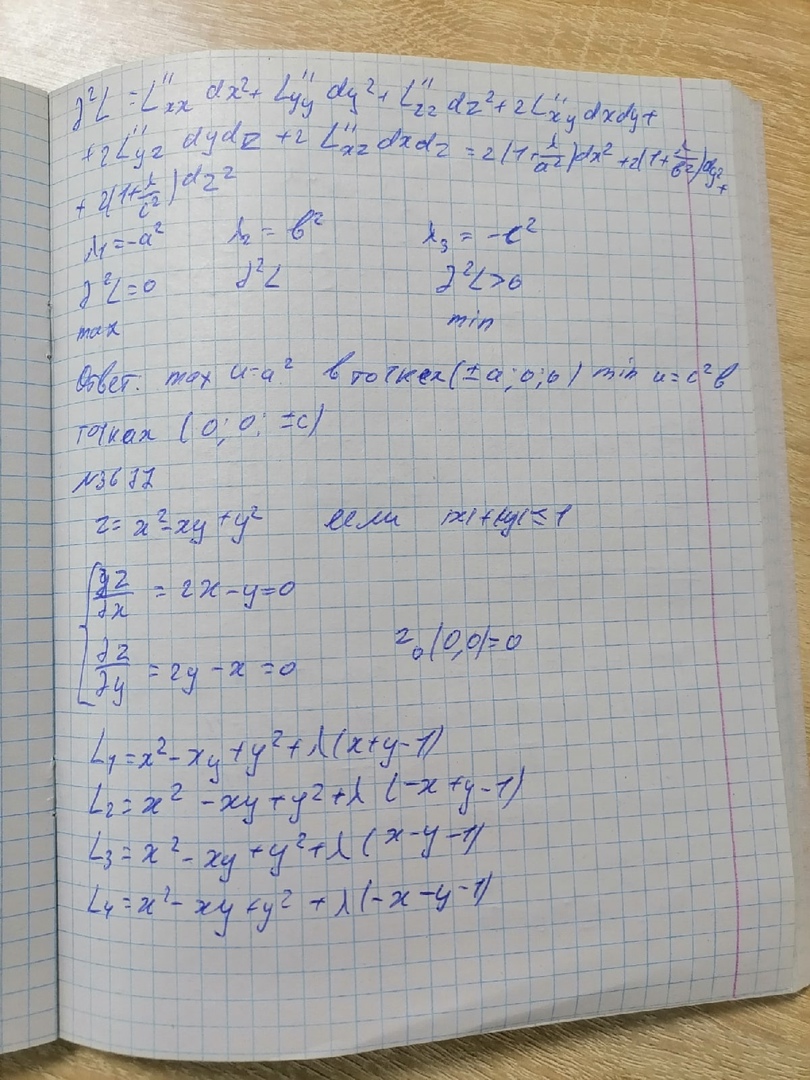 ∂²L = L''xx dx² + L''yy dy² + L''zz dz² + 2L''xy dxdy +
+ 2L''yz dydz + 2L''xz dxdz = 2(1+λ/a²)dx² + 2(1+λ/b²)dy² +
+ 2(1+λ/c²)dz²
λ₁ = -a² λ₂ = b² λ₃ = -c²
∂²L = 0 ∂²L ∂²L > 0
max min
Ответ: max u = a² в точках (±a; 0; 0) min u = c² в
точках (0; 0; ±c)
z = x² - xy + y² если |x| + |y| ≤ 1
∂z/∂x = 2x - y = 0
z₀(0,0) = 0
∂z/∂y = 2y - x = 0
L₁ = x² - xy + y² + λ(x+y-1)
L₂ = x² - xy + y² + λ(-x+y-1)
L₃ = x² - xy + y² + λ(x-y-1)
L₄ = x² - xy + y² + λ(-x-y-1)